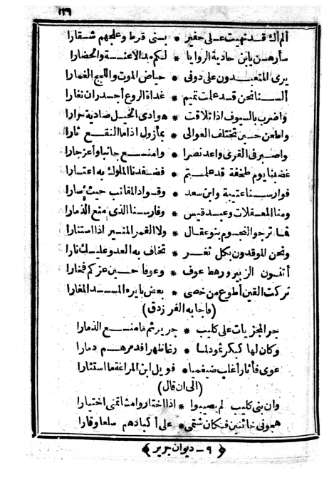 ١٢٦
ألم أك قد نهيت على حفير * بني قرط وعلجهم شقارا
سأرهن يا ابن حادجة الروايا * لكم مد الاعنة والحضارا
يرى المتعبدون على دونى * حياض الموت واللجج الغمارا
ألسنا نحن قد علمت تميم * غداة الروع أجدر ان نغارا
واضرب بالسيوف اذا تلاقت * هوادى الخيل صادية حرارا
واطعن حين تختلف العوالى * بمأزول اذا ما النقع ثارا
واصبر فى القوى واعد نصرا * وامنع جانبا وأعز جارا
غضبنا يوم طخفة قد علمتم * فصفدنا الملوك به اعتسارا
فوارسنا عتيبة وابن سعد * وقواد المقانب حيث سارا
ومنا المعقلان وعبد قيس * وفارسنا الذى منع الذمارا
فما ترجو النجوم بنو عقال * ولا القمر المنير اذا استنارا
ونحن الموقدون بكل ثغر * تخاف به العدو عليك نارا
أتنسون الزبير ورهط عوف * وعوفا حين عزكم فجارا
تركت القين أطوع من خصى * يعض بايره المسد المغارا
(فأجابه الفرزدق)
جر المخزيات على كليب * جرير ثم ما منع الذمارا
وكان لهم كبكر ثمود لما * رغا ظهرا فدمرهم دمارا
عوى فأثار أغلب ضيغميا * فويل ابن المراغة ما استثارا
(الى ان قال)
وان بنى كليب لم يصيبوا * اذا اختار وا مشاتمتى اختيارا
هجونى حائنين فكان شتمى * على أكبادهم سلعا وقارا
﴿ ٩ - ديوان جرير ﴾